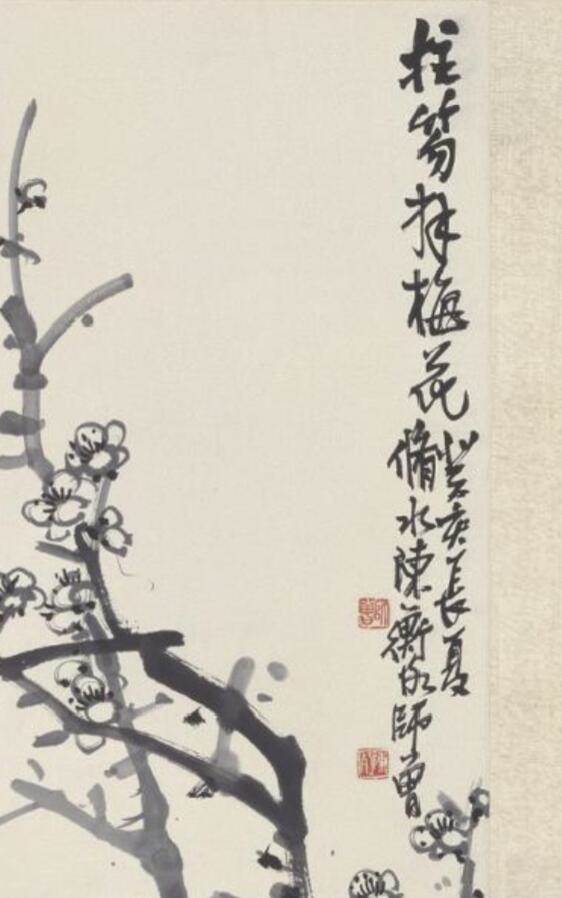 拄笏拜梅花
癸亥長夏
脩水陳衡恪師曾